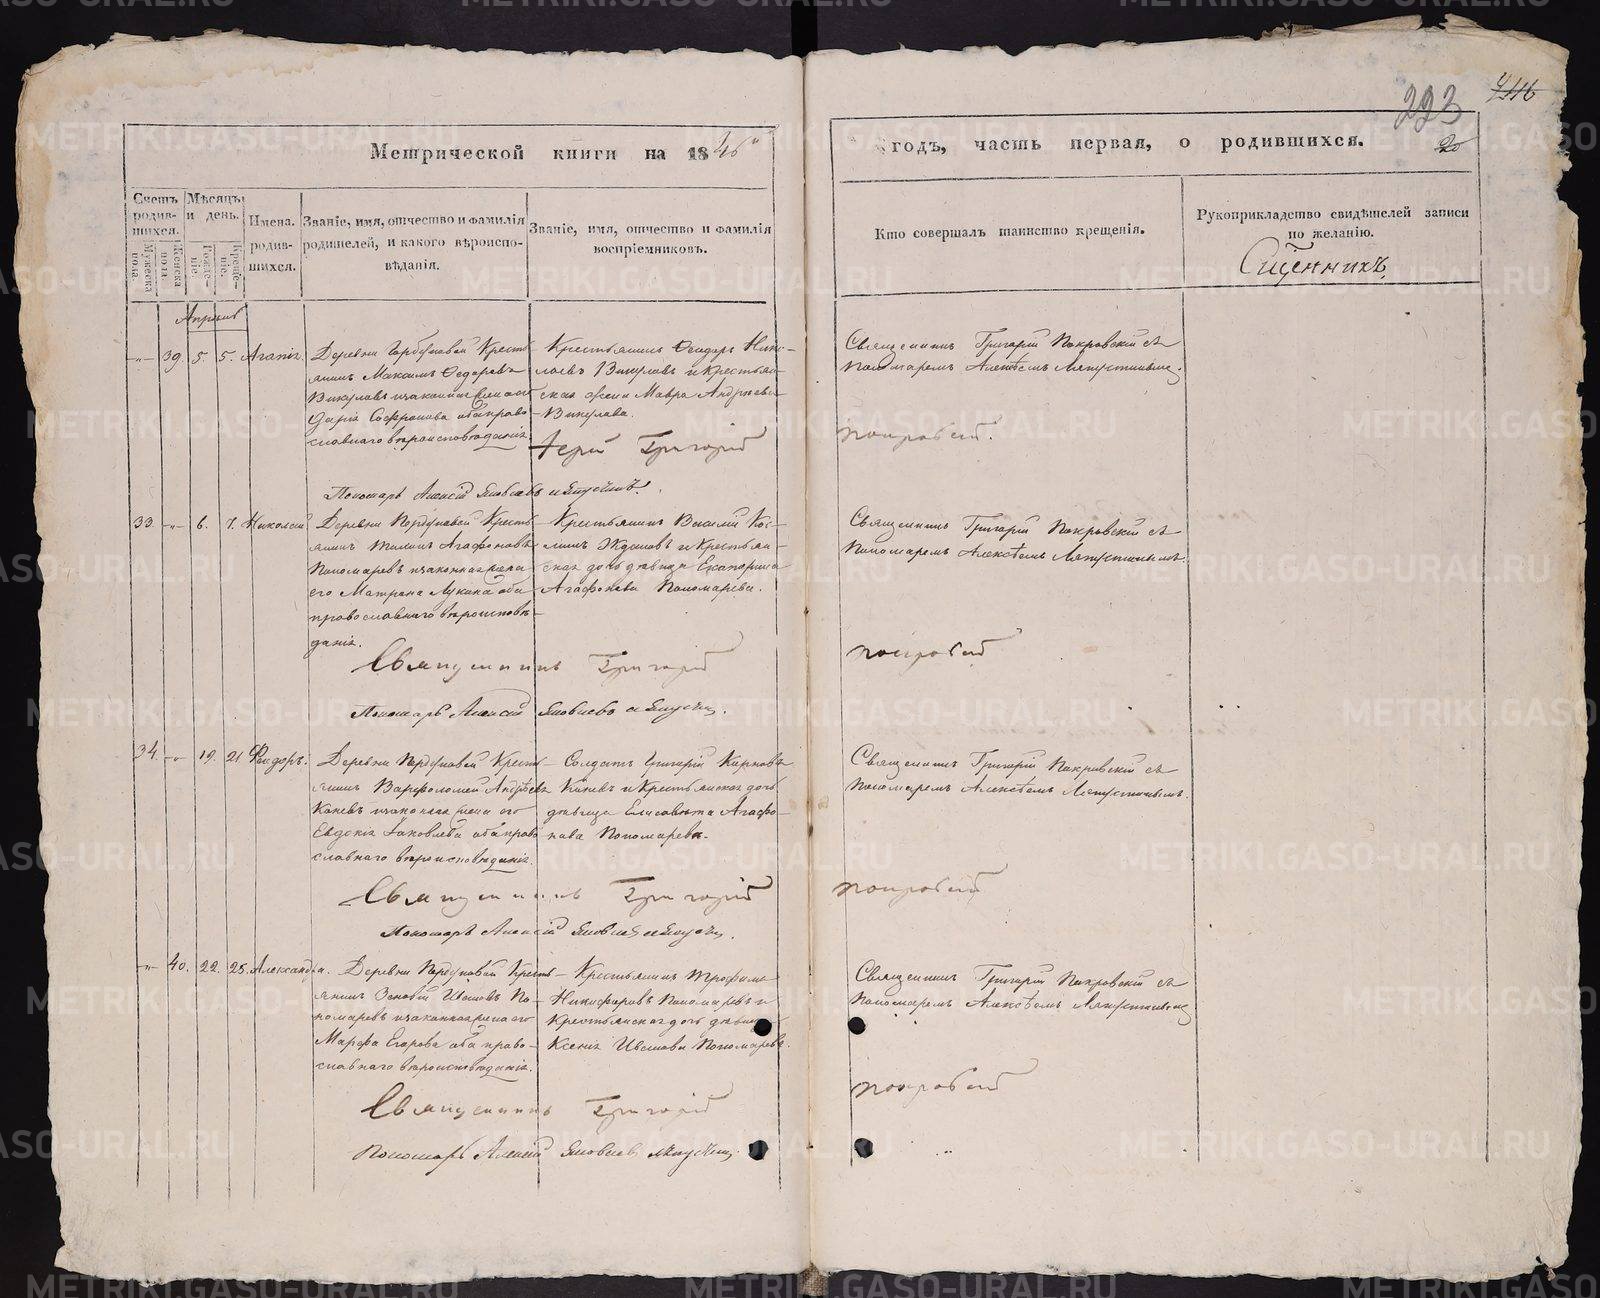 223
Метрической книги на 1846
годъ, часть первая, о родившихся.
Счетъ родив-шихся.
Мужеска пола.
Женска пола.
Мѣсяцъ и день.
Рожде-ніе.
Креще-ніе.
Имена родив-шихся.
Званіе, имя, отчество и фамилія
родителей, и какого вѣроиспо-
вѣданія.
Званіе, имя, отчество и фамилія
воспріемниковъ.
Кто совершалъ таинство крещенія.
Рукоприкладство свидѣтелей записи
по желанію.
Апрѣль
39. 5. 5. Агапія.
Деревни Кресть-
янинъ Максимъ Ѳедоровъ
Викуловъ и законная жена его
Дарія Софронова оба право-
славнаго вѣроисповѣданія.
Крестьянинъ Ѳеодоръ Нико-
лаевъ Викуловъ и крестьян-
ская жена Мавра Андреева
Викулова.
Священникъ Григорій Покровскій съ
Пономаремъ Алексѣемъ Ляпустинымъ.
Іерей Григорій Покровскій.
Пономарь Алексій Яковлевъ Ляпустинъ.
33 6. 7. Николай
Деревни Кресть-
янинъ Агафоновъ
Пономаревъ и законная жена
его Матрона Лукина оба
православнаго вѣроисповѣ-
данія.
Крестьянинъ Василій Кос-
минъ Ждановъ и крестьян-
ская дочь дѣвица Екатерина
Агафонова Пономарева.
Священникъ Григорій Покровскій съ
Пономаремъ Алексѣемъ Ляпустинымъ.
Священникъ Григорій Покровскій
Пономарь Алексій Яковлевъ Ляпустинъ.
34 19. 21 Ѳеодоръ.
Деревни Кресть-
янинъ Варфоломей Андреевъ
Каневъ и законная жена его
Евдокія Іаковлева оба право-
славнаго вѣроисповѣданія.
Солдатъ Григорій Карповъ
Каневъ и Крестьянская дочь
дѣвица Елисавета Агафо-
нова Пономарева.
Священникъ Григорій Покровскій съ
Пономаремъ Алексѣемъ Ляпустинымъ.
Священникъ Григорій Покровскій
Пономарь Алексій Яковлевъ Ляпустинъ.
40. 22. 25. Александра.
Деревни Кресть-
янинъ Зеновій Ивановъ По-
номаревъ и законная жена его
Марѳа Егорова оба право-
славнаго вѣроисповѣданія.
Крестьянинъ Трофимъ
Никифоровъ Пономаревъ и
Крестьянская дочь дѣвица
Ксенія Иванова Пономарева.
Священникъ Григорій Покровскій съ
Пономаремъ Алексѣемъ Ляпустинымъ
Священникъ Григорій Покровскій
Пономарь Алексій Яковлевъ Ляпустинъ.
METRIKI.GASO-URAL.RU